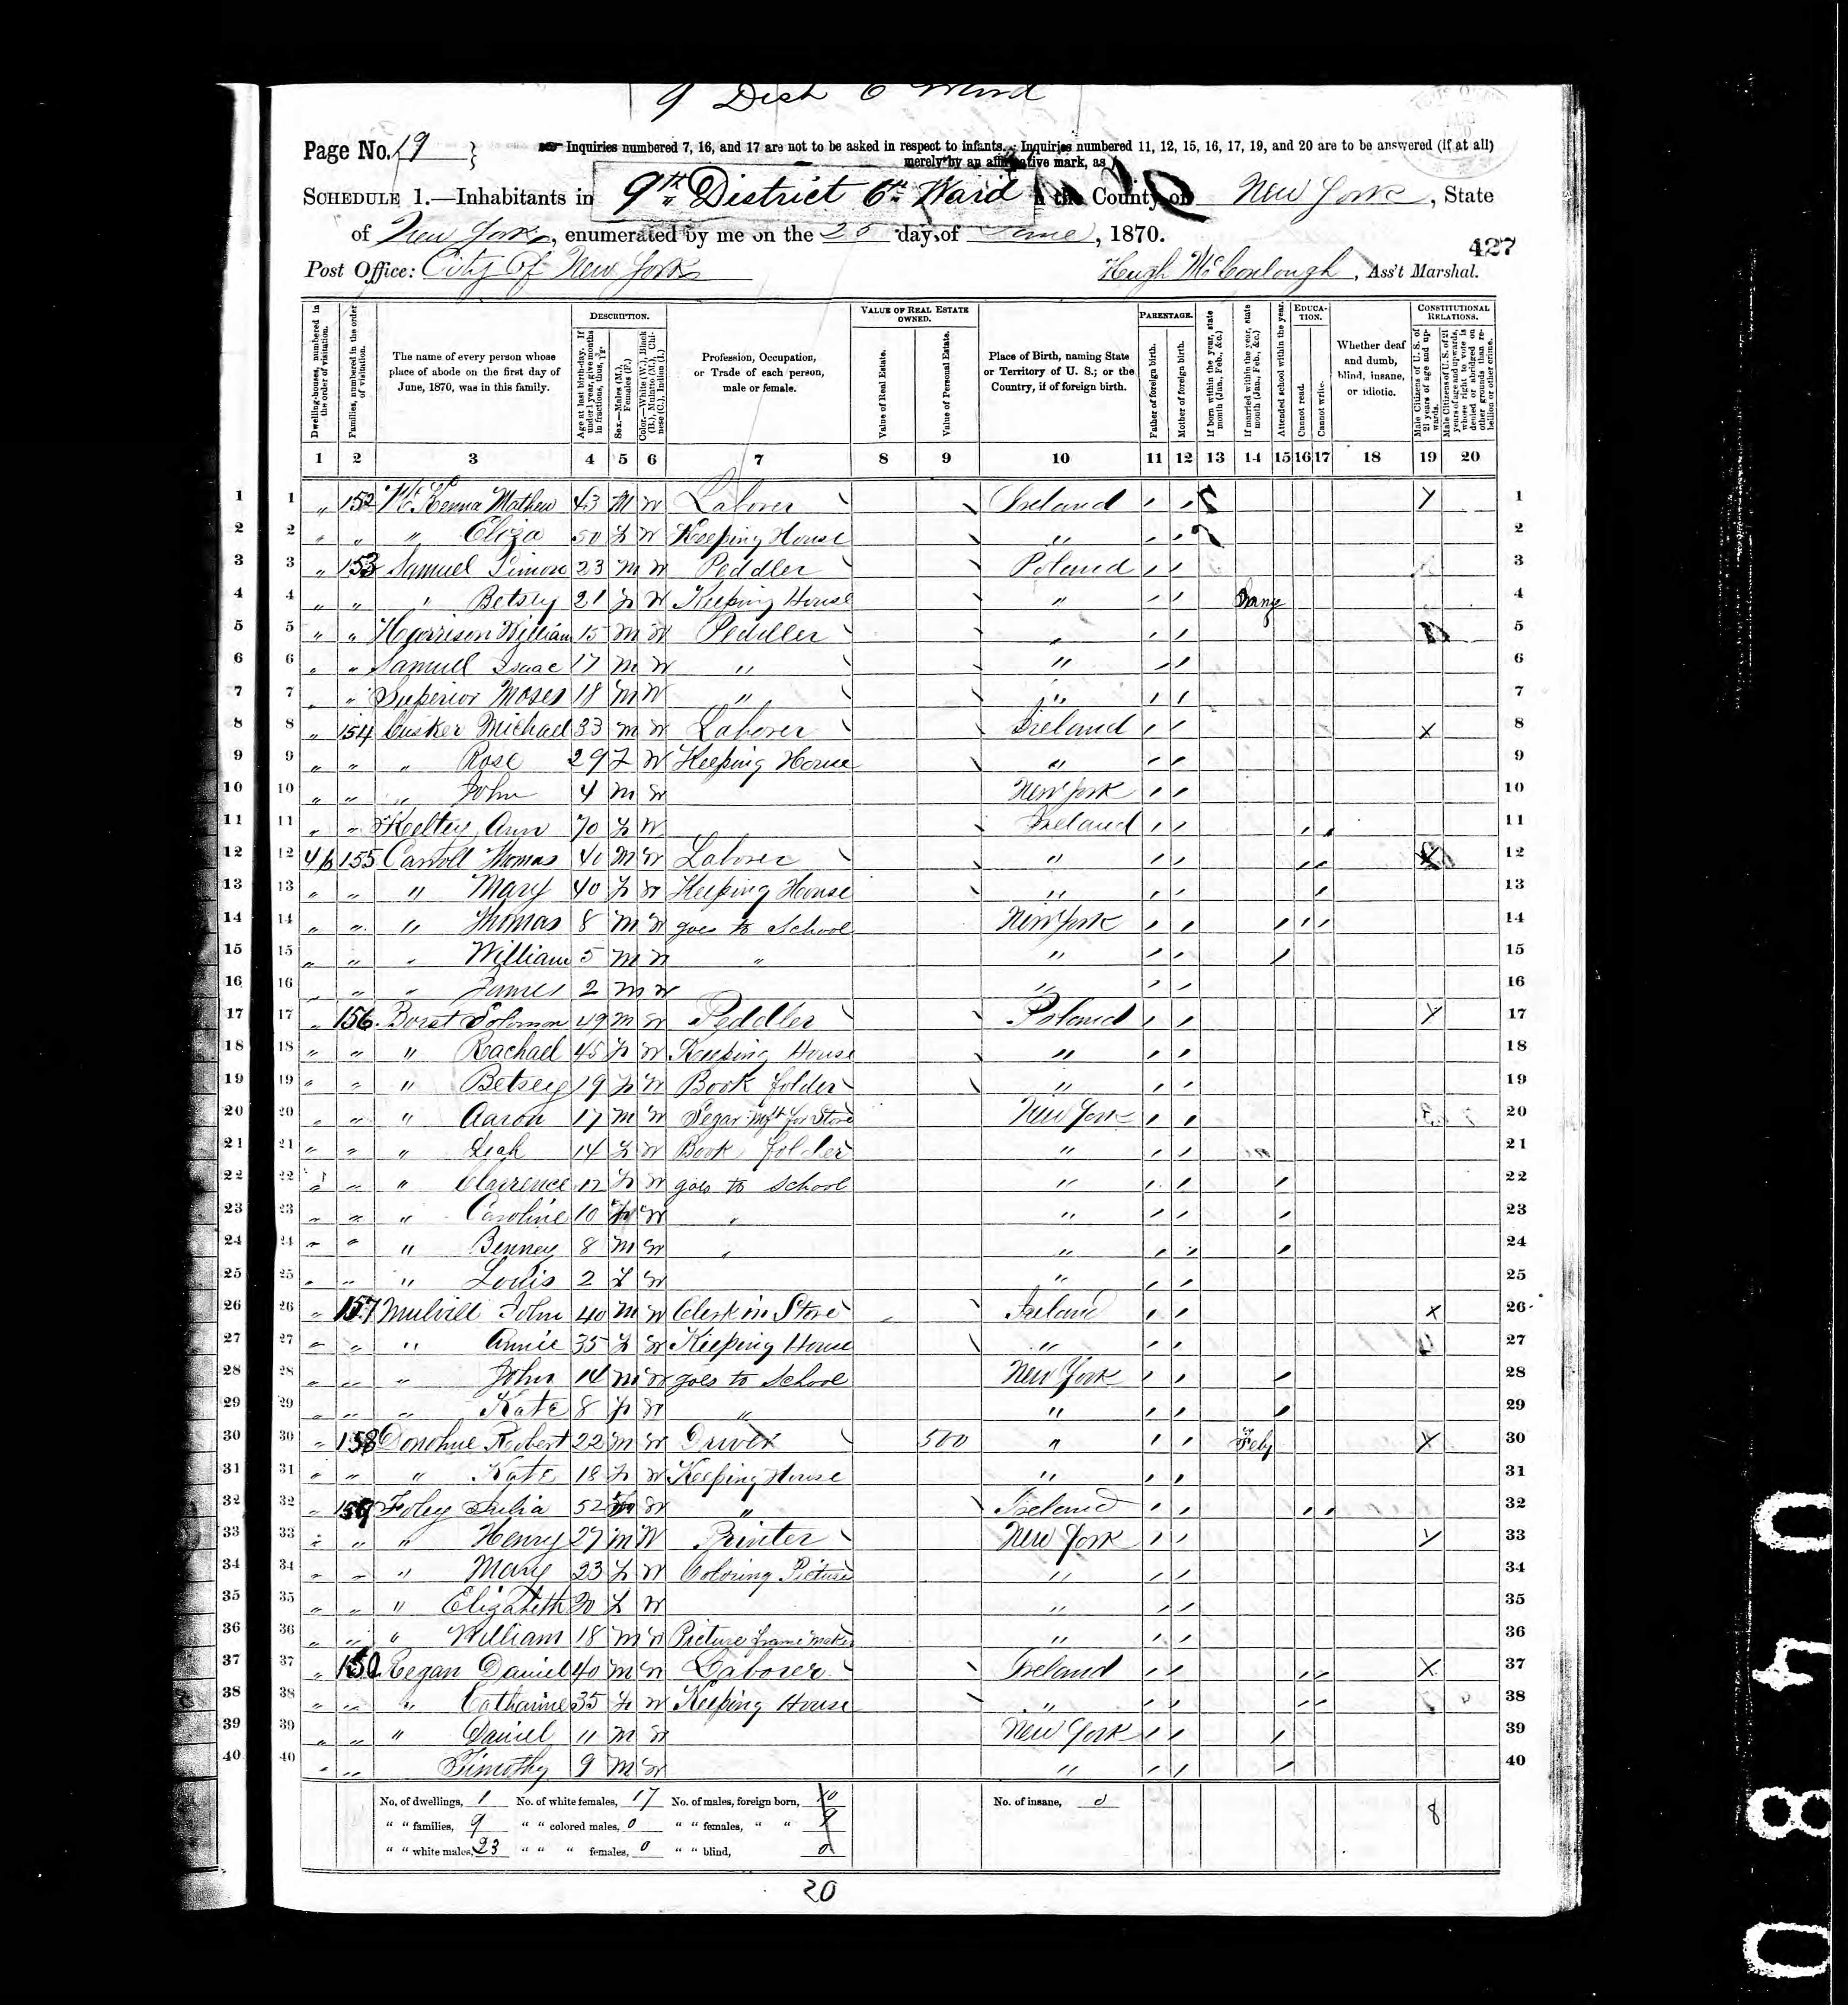 9 Dist 6 Ward
Page No. 19
Inquiries numbered 7, 16, and 17 are not to be asked in respect to infants. Inquiries numbered 11, 12, 15, 16, 17, 19, and 20 are to be answered (if at all)
merely by an affirmative mark, as /
SCHEDULE 1.—Inhabitants in 9th District 6th Ward the County of New York, State
of New York, enumerated by me on the 25 day of June, 1870.
427
Post Office: City Of New York Hugh McConlough, Ass't Marshal.
Dwelling-houses, numbered in the order of visitation.
Families, numbered in the order of visitation.
The name of every person whose place of abode on the first day of June, 1870, was in this family.
DESCRIPTION.
Age at last birth-day. If under 1 year, give months in fractions, thus, 3/12.
Sex.—Males (M.), Females (F.)
Color.—White (W.), Black (B.), Mulatto (M.), Chinese (C.), Indian (I.)
Profession, Occupation, or Trade of each person, male or female.
VALUE OF REAL ESTATE OWNED.
Value of Real Estate.
Value of Personal Estate.
Place of Birth, naming State or Territory of U. S.; or the Country, if of foreign birth.
PARENTAGE.
Father of foreign birth.
Mother of foreign birth.
If born within the year, state month (Jan., Feb., &c.)
If married within the year, state month (Jan., Feb., &c.)
Attended school within the year.
EDUCATION.
Cannot read.
Cannot write.
Whether deaf and dumb, blind, insane, or idiotic.
CONSTITUTIONAL RELATIONS.
Male Citizens of U. S. of 21 years of age and upwards.
Male Citizens of U. S. of 21 years of age and upwards, whose right to vote is denied or abridged on other grounds than rebellion or other crime.
1 2 3 4 5 6 7 8 9 10 11 12 13 14 15 16 17 18 19 20
1 1 " 152 McKenna Mathew 43 M W Laborer Ireland / / 1
2 2 " " " Eliza 50 F W Keeping House " / / 2
3 3 " 153 Samuel Simon 23 M W Peddler Poland / / 3
4 4 " " " Betsey 21 F W Keeping House " / / 4
5 5 " " Harrison William 15 M W Peddler " / / 5
6 6 " " Samuel Isaac 17 M W " " / / 6
7 7 " " Superior Moses 18 M W " " / / 7
8 8 " 154 Cusker Michael 33 M W Laborer Ireland / / X 8
9 9 " " " Rose 29 F W Keeping House " / / 9
10 10 " " " John 4 M W New York / / 10
11 11 " " Keltey Ann 70 F W Ireland / / / / 11
12 12 46 155 Carroll Thomas 40 M W Laborer " / / / / X 12
13 13 " " " Mary 40 F W Keeping House " / / / 13
14 14 " " " Thomas 8 M W goes to School New York / / / / / 14
15 15 " " " William 5 M W " " / / / 15
16 16 " " " James 2 M W " / / 16
17 17 " 156 Borst Solomon 49 M W Peddler Poland / / 17
18 18 " " " Rachael 45 F W Keeping House " / / 18
19 19 " " " Betsey 19 F W Book folder " / / 19
20 20 " " " Aaron 17 M W Segar Mft for Store New York / / 20
21 21 " " " Leah 14 F W Book folder " / / 21
22 22 " " " Clairence 12 F W goes to School " / / / 22
23 23 " " " Caroline 10 F W " " / / / 23
24 24 " " " Benney 8 M W " " / / / 24
25 25 " " " Louis 2 F W " / / 25
26 26 " 157 Mulvill John 40 M W Clerk in Store Ireland / / X 26
27 27 " " " Annie 35 F W Keeping House " / / 27
28 28 " " " John 14 M W goes to School New York / / / 28
29 29 " " " Kate 8 F W " " / / / 29
30 30 " 158 Donohue Robert 22 M W Driver 500 " / / Feby X 30
31 31 " " " Kate 18 F W Keeping House " / / 31
32 32 " 159 Foley Julia 52 F W " Ireland / / / / 32
33 33 " " " Henry 27 M W Printer New York / / 33
34 34 " " " Mary 23 F W Coloring Picture " / / 34
35 35 " " " Elizabeth 20 F W " / / 35
36 36 " " " William 18 M W Picture frame Maker " / / 36
37 37 " 150 Regan Daniel 40 M W Laborer Ireland / / / / X 37
38 38 " " " Catharine 35 F W Keeping House " / / / / 38
39 39 " " " Daniel 11 M W New York / / / 39
40 40 " " Timothy 9 M W " / / / 40
No. of dwellings, 1 No. of white females, 17 No. of males, foreign born, 10 No. of insane, 0 8
" " families, 9 " " colored males, 0 " " females, " " 9
" " white males, 23 " " " females, 0 " " blind, 0
20
0480